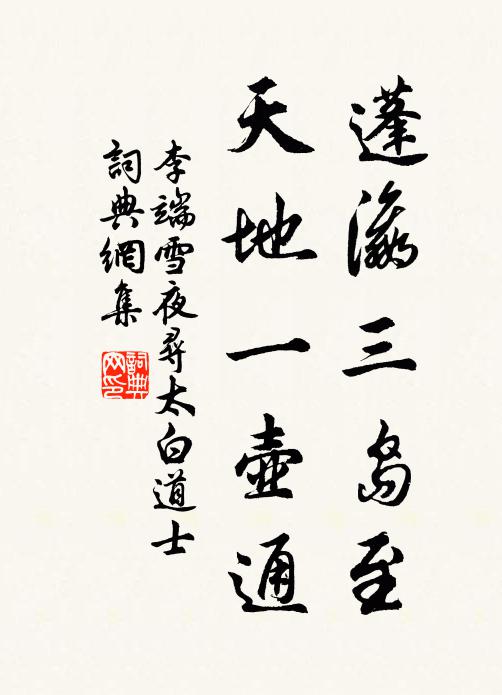 蓬瀛三島至
天地一壺通
李端雪夜尋太白道士
詞典網集
詞典網印